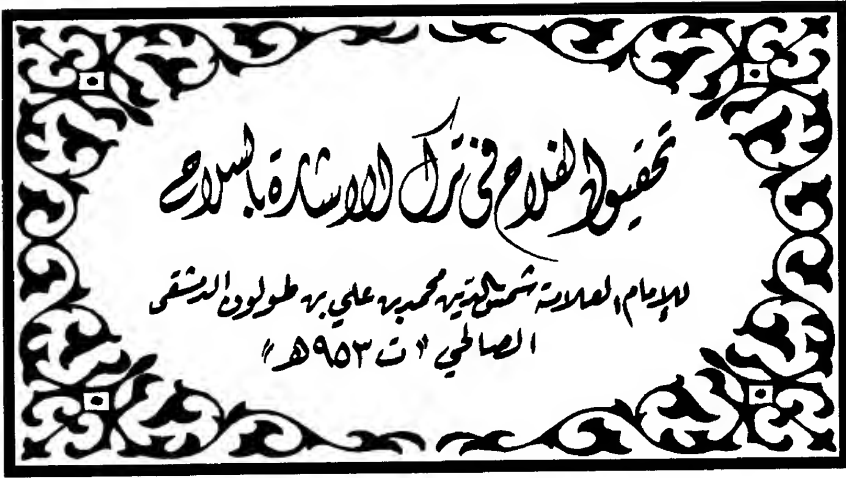 تحقيق الفلاح في ترك الاشارة بالسلاح
للإمام العلامة شمس الدين محمد بن علي بن طولون الدمشقي
الصالحي "ت ٩٥٣هـ"